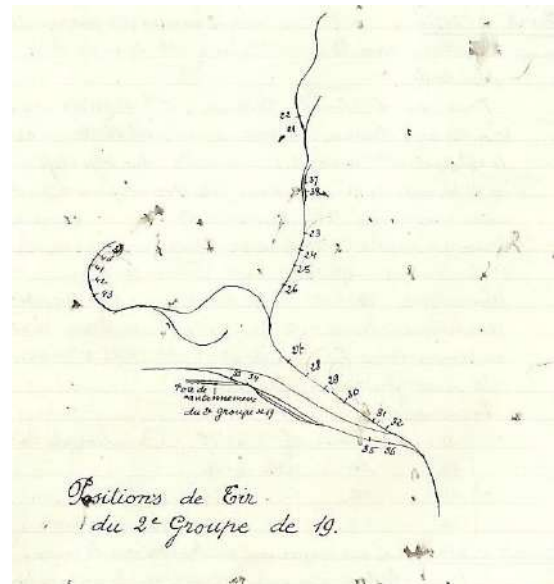 22
21
37
38
23
24
25
26
40
41
42
43
27
28
29
30
31
32
33 34
Voie de
cantonnement
du 2e Groupe de 19
35 36
Positions de Tir
du 2e Groupe de 19.